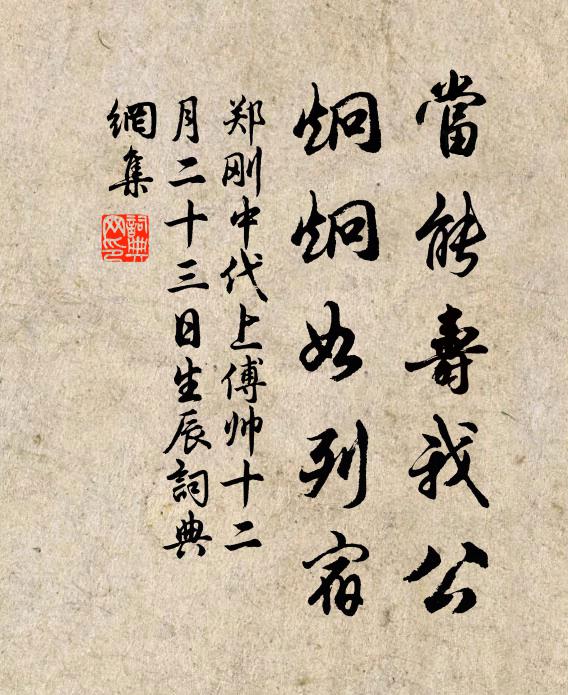 當能壽我公
炯炯如列宿
郑刚中代上傅帅十二
月二十三日生辰詞典
網集
詞典
网印